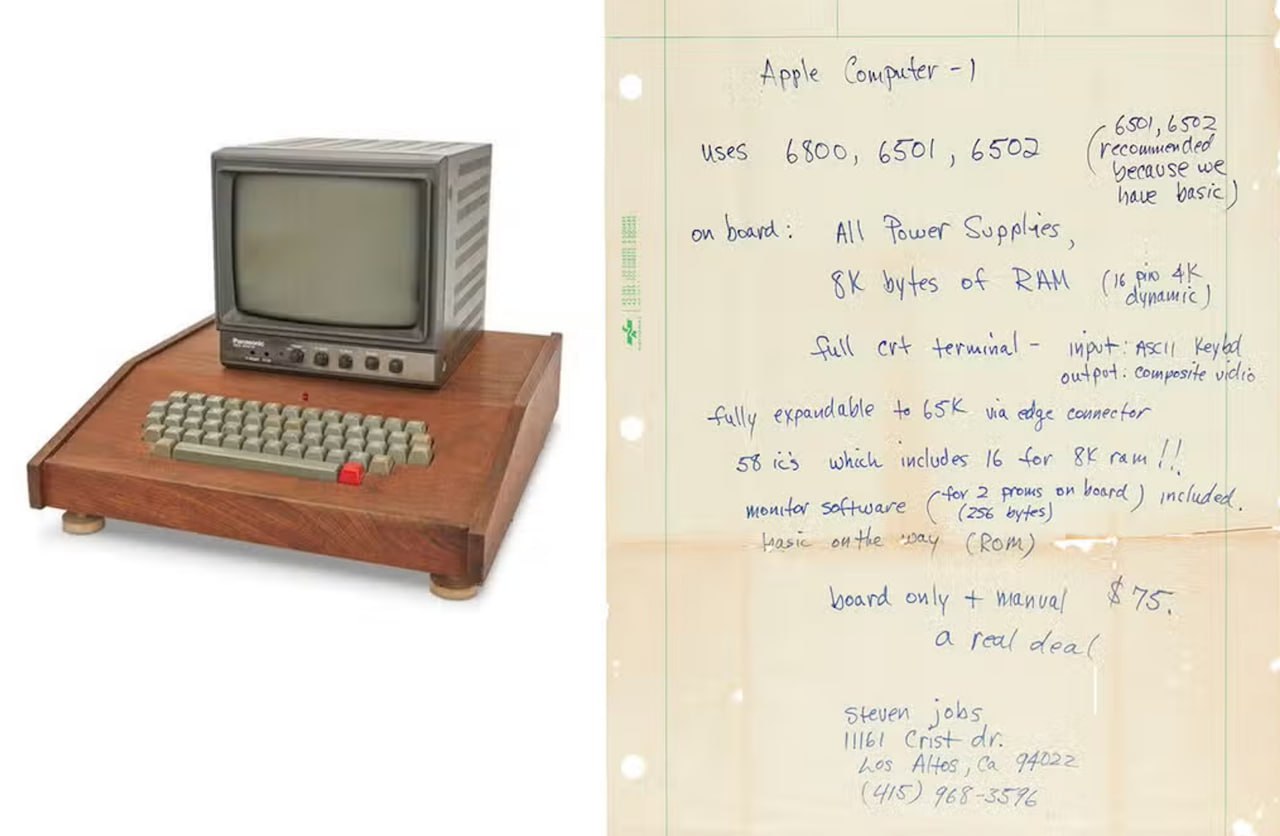 Panasonic
Apple Computer-1
uses 6800, 6501, 6502
(6501, 6502
recommended
because we
have basic)
on board: All Power Supplies,
8K bytes of RAM (16 pin 4K
dynamic)
full crt terminal - input: ASCII Keybd
output: composite vidio
fully expandable to 65K via edge connector
58 ic's which includes 16 for 8K ram!!
monitor software (for 2 proms on board) included.
(256 bytes)
basic on the way (ROM)
board only + manual $75.
a real deal
Steven jobs
11161 Crist dr.
Los Altos, Ca 94022
(415) 968-3596